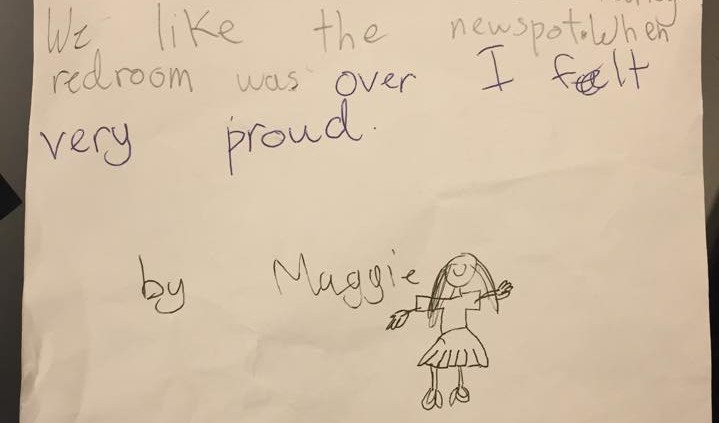 We like the newspot.When
redroom was over I felt
very proud.
by Maggie